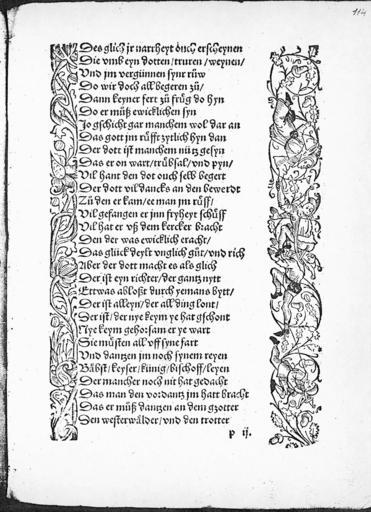 114
Des glich jr narrheyt ouch erscheynen
Die vmb eyn dotten/truren/weynen/
Vnd jm vergünnen syne rüw
Do wir doch all begeren zů/
Dann keyner fert zů früg do hyn
Do er můß ewicklichen syn
Jo gschicht gar manchem wol dar an
Das gott jm rüfft zytlich hyn dan
Der dott ist manchem nütz gesyn
Das er on wart/trübsal/vnd pyn/
Vil hant den dot ouch selb begert
Der dott vil dancks an den bewerdt
Zů den er kam/ee man jm rüff/
Vil gefangen er jnn fryheyt schůff
Vil hat er vß dem kercker bracht
Den der was ewicklich eracht/
Das glück deylt vnglich gůt/vnd rich
Aber der dott macht es als glich
Der ist eyn richter/der gantz nytt
Ettwas abloßt durch yemans bytt/
Der ist alleyn/der all ding lont/
Der ist/der nye keym ye hat gschont
Nye keym gehorsam er ye wart
Sie můsten all vff syne fart
Vnd dantzen jm noch synem reyen
Bäbst/keyser/künig/bischoff/leyen
Der mancher noch nit hat gedacht
Das man den vordantz jm hatt bracht
Das er můß dantzen an dem gzotter
Den westerwälder/vnd den trotter
p ij.